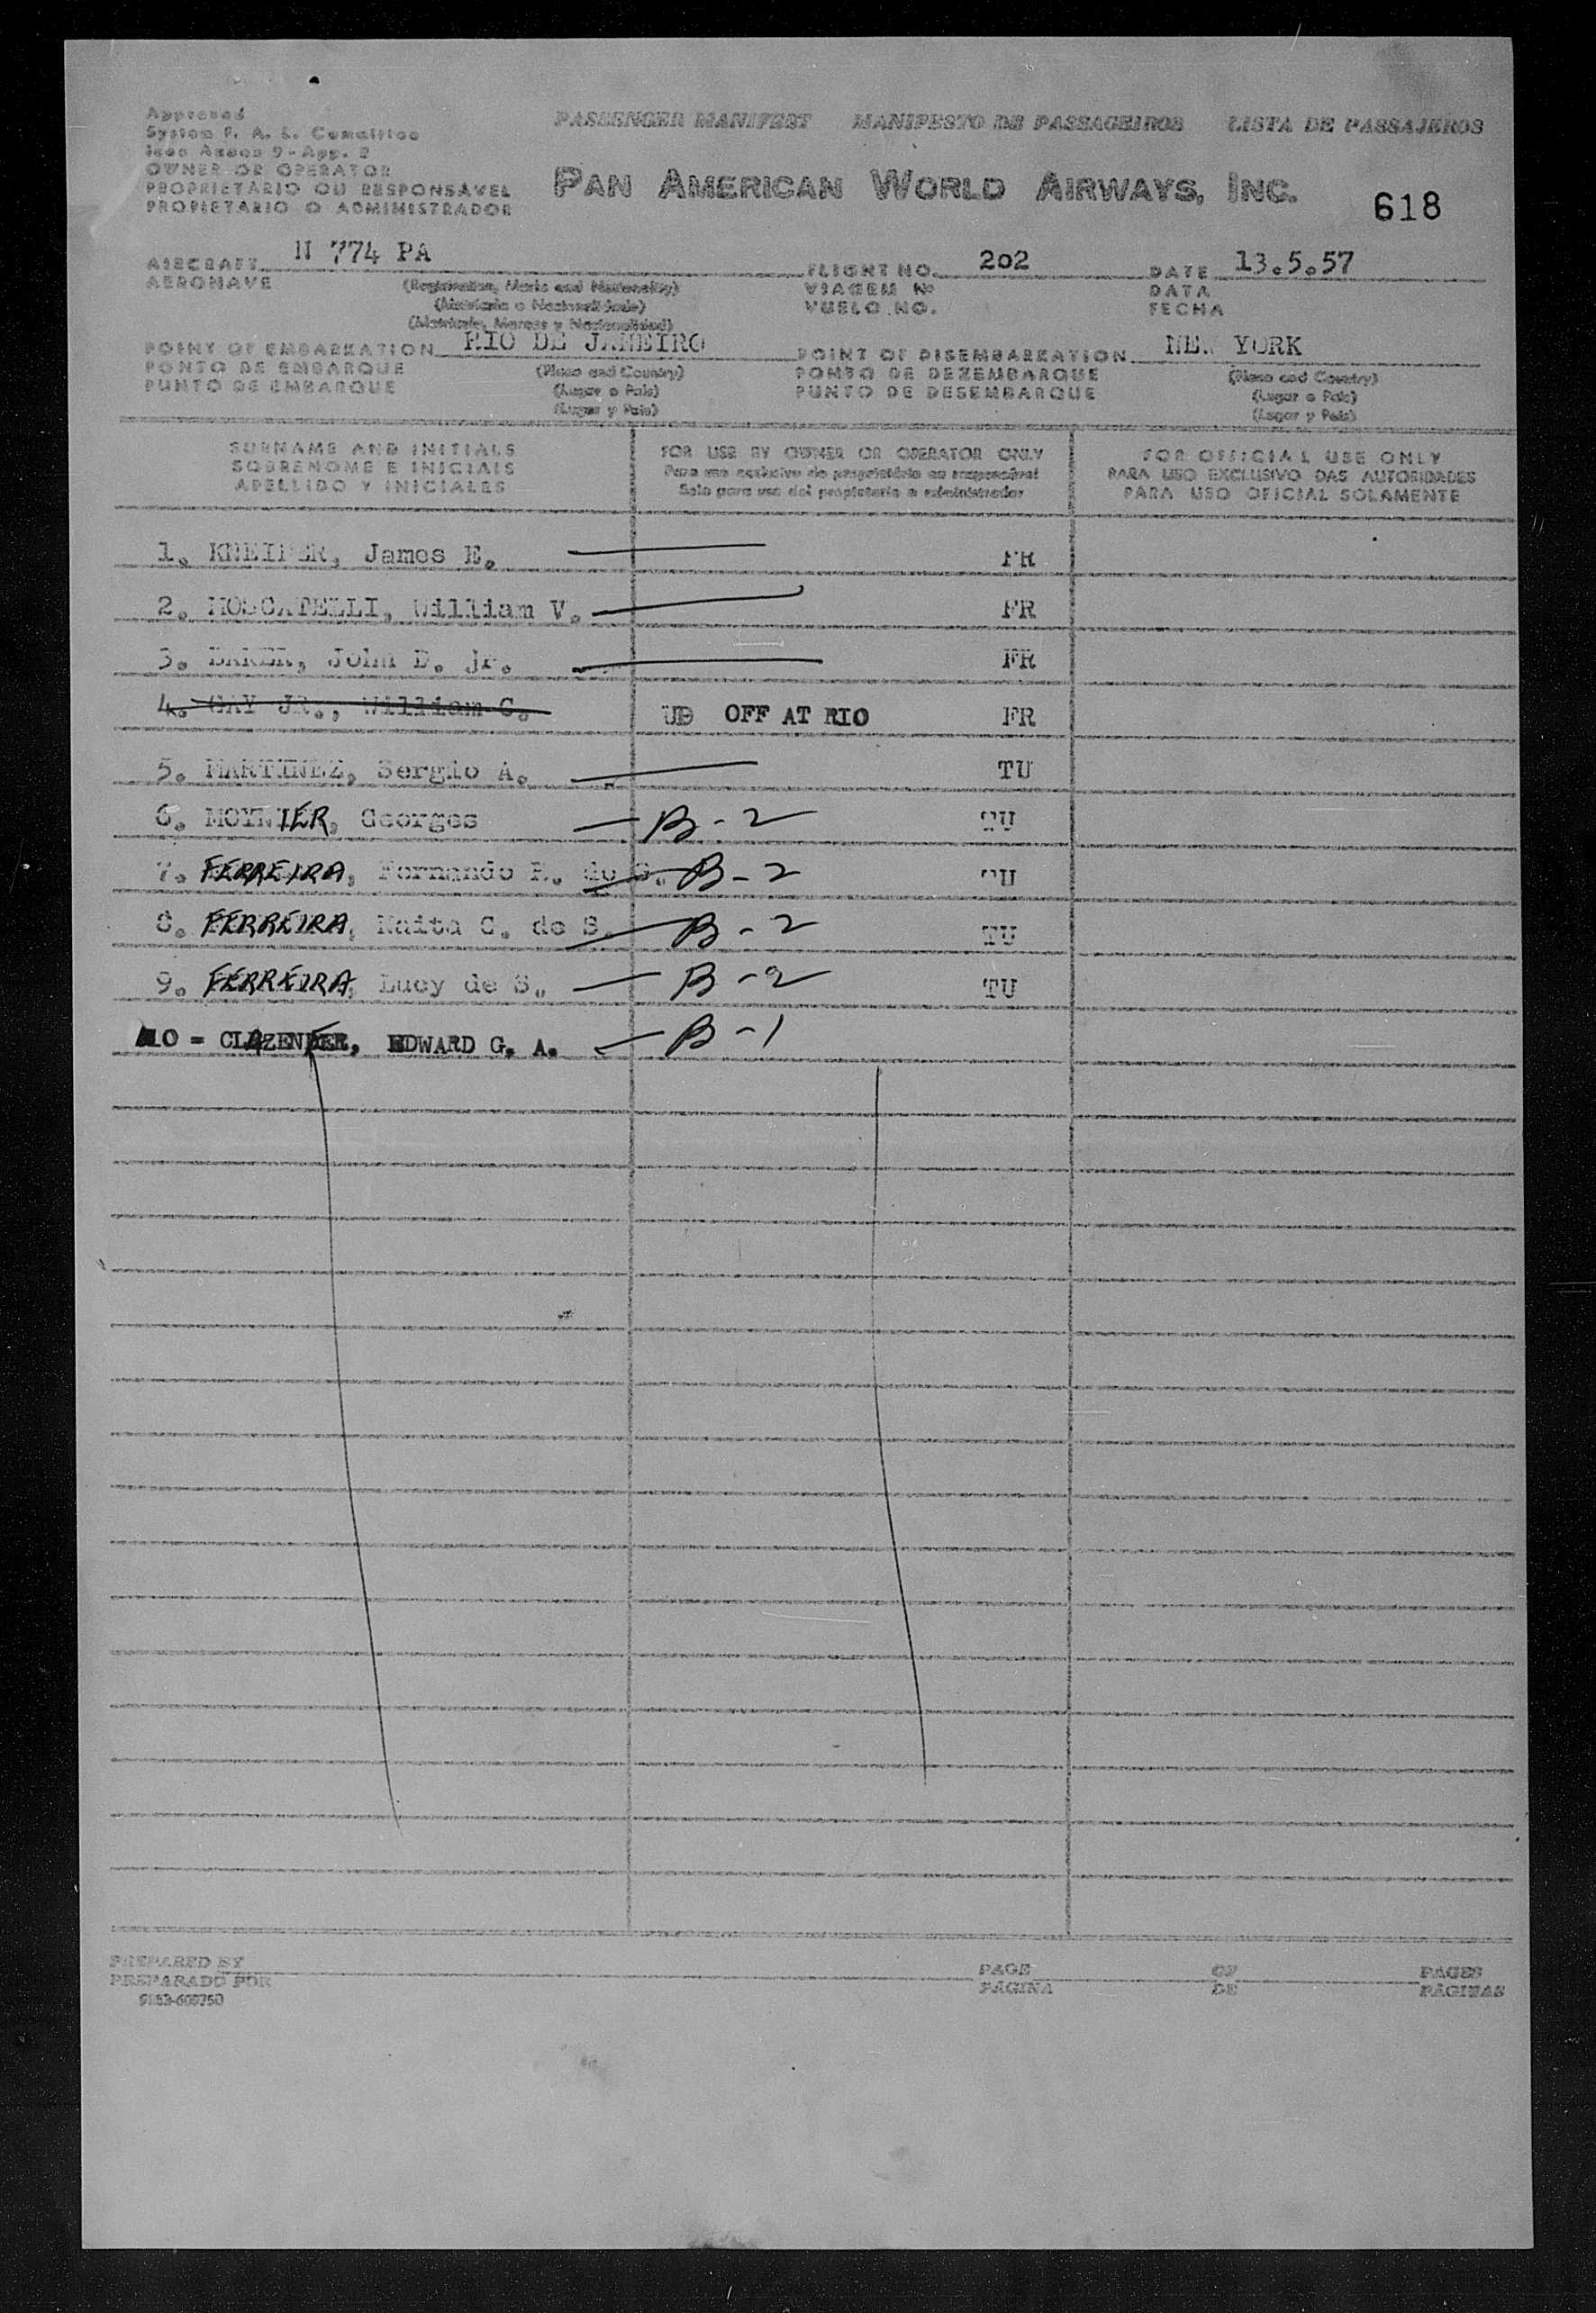 Approved
System F. A. L. Committee
Icao Annex 9 - App. 2
OWNER OR OPERATOR
PROPRIETÁRIO OU RESPONSÁVEL
PROPIETARIO O ADMIMISTRADOR
PASSENGER MANIFEST MANIFESTO DE PASSAGEIROS LISTA DE PASSAJEROS
PAN AMERICAN WORLD AIRWAYS, INC.
618
AIRCRAFT N 774 PA FLIGHT NO. 202 DATE 13.5.57
AERONAVE (Registration, Marks and Nationality) VIAGEM Nº DATA
(Matrícula e Nacionalidade) VUELO NO. FECHA
(Matrícula, Marcas y Nacionalidad)
POINT OF EMBARKATION RIO DE JANEIRO POINT OF DISEMBARKATION NEW YORK
PONTO DE EMBARQUE (Place and Country) PONTO DE DEZEMBARQUE (Place and Country)
PUNTO DE EMBARQUE (Lugar e País) PUNTO DE DESEMBARQUE (Lugar e País)
(Lugar y País) (Lugar y País)
SURNAME AND INITIALS FOR USE BY OWNER OR OPERATOR ONLY FOR OFFICIAL USE ONLY
SOBRENOME E INICIAIS Para uso exclusivo do proprietário ou responsável PARA USO EXCLUSIVO DAS AUTORIDADES
APELLIDO Y INICIALES Solo para uso del propietario o administrador PARA USO OFICIAL SOLAMENTE
1. KNEIPER, James E. FR
2. MOSCATELLI, William V. FR
3. BAKER, John D. jr. FR
4. GAY JR., William C. UD OFF AT RIO FR
5. MARTINEZ, Sergio A. TU
6. MOYNIER, Georges B-2 TU
7. FERREIRA, Fernando R. de S. B-2 TU
8. FERREIRA, Naita C. de S. B-2 TU
9. FERREIRA, Lucy de S. B-2 TU
10 = CLAZENER, EDWARD G. A. B-1
PREPARED BY PAGE OF PAGES
PREPARADO POR PÁGINA DE PÁGINAS